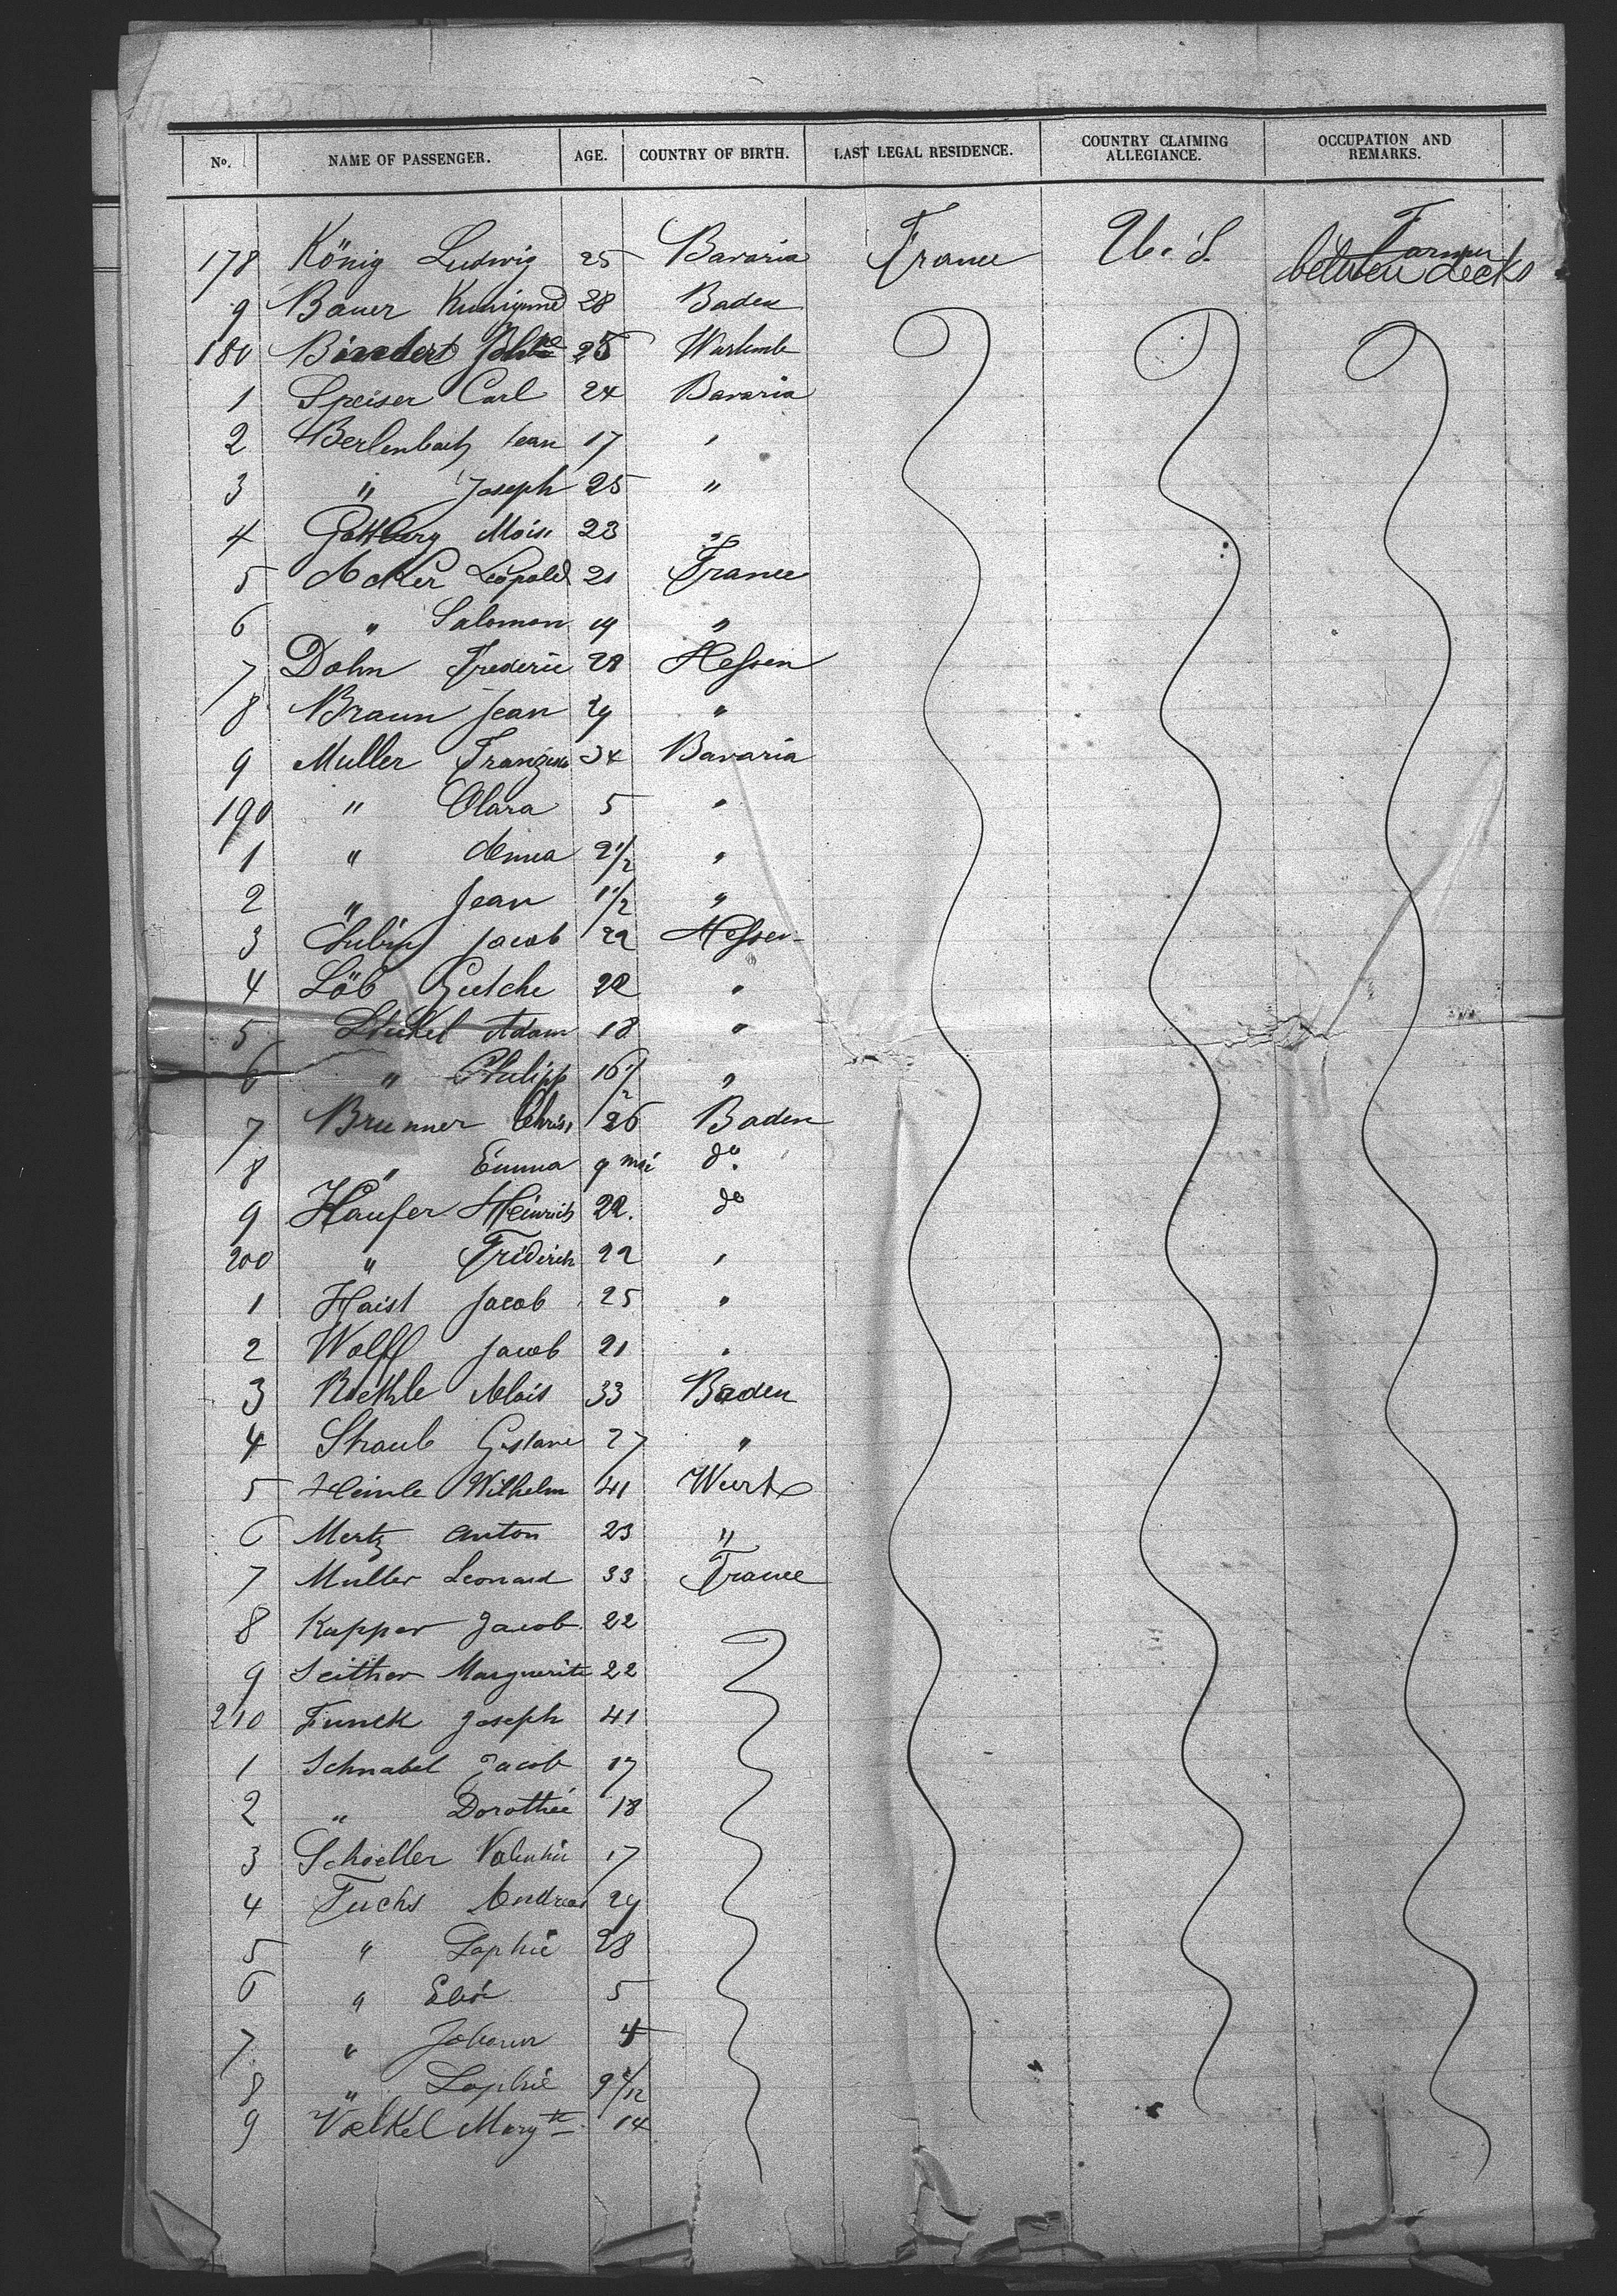 No. NAME OF PASSENGER. AGE. COUNTRY OF BIRTH. LAST LEGAL RESIDENCE. COUNTRY CLAIMING ALLEGIANCE. OCCUPATION AND REMARKS.
178 König Ludwig 25 Bavaria France U. S. Farmer between decks
9 Bauer 28 Baden
180 25
1 Speiser Carl 24 Bavaria
2 Berlenbach Jean 17 "
3 " Joseph 25 "
4 23 "
5 Acker Léopold 21 France
6 " Salomon 19 "
7 Dohn Frederic 28 Hessen
8 Braun Jean 29 "
9 Muller 34 Bavaria
190 " Clara 5 "
1 " Anna 2 1/2 "
2 " Jean 1 1/2 "
3 Jacob 22 Hessen
4 Löb 22 "
5 Adam 18 "
6 " Philipp 16 1/2 "
7 Brunner Chris. 26 Baden
8 " Emma 9 do
9 Haufer Heinrich 22. do
200 " Friderich 22 "
1 Haist Jacob 25 "
2 Wolff Jacob 21 "
3 Alois 33 Baden
4 Straub Gustave 27 "
5 Heimle Wilhelm 41 Wurt
6 Mertz Anton 23 "
7 Muller Leonard 33 France
8 Kupper Jacob 22
9 Seither Marguerite 22
210 Funck Joseph 41
1 Schnabel Jacob 17
2 " Dorothée 18
3 Schoeller Valentin 17
4 Fuchs Andreas 29
5 " Sophie 28
6 " 5
7 " Johann 4
8 " Sophie
9 Voelkel Margte 14